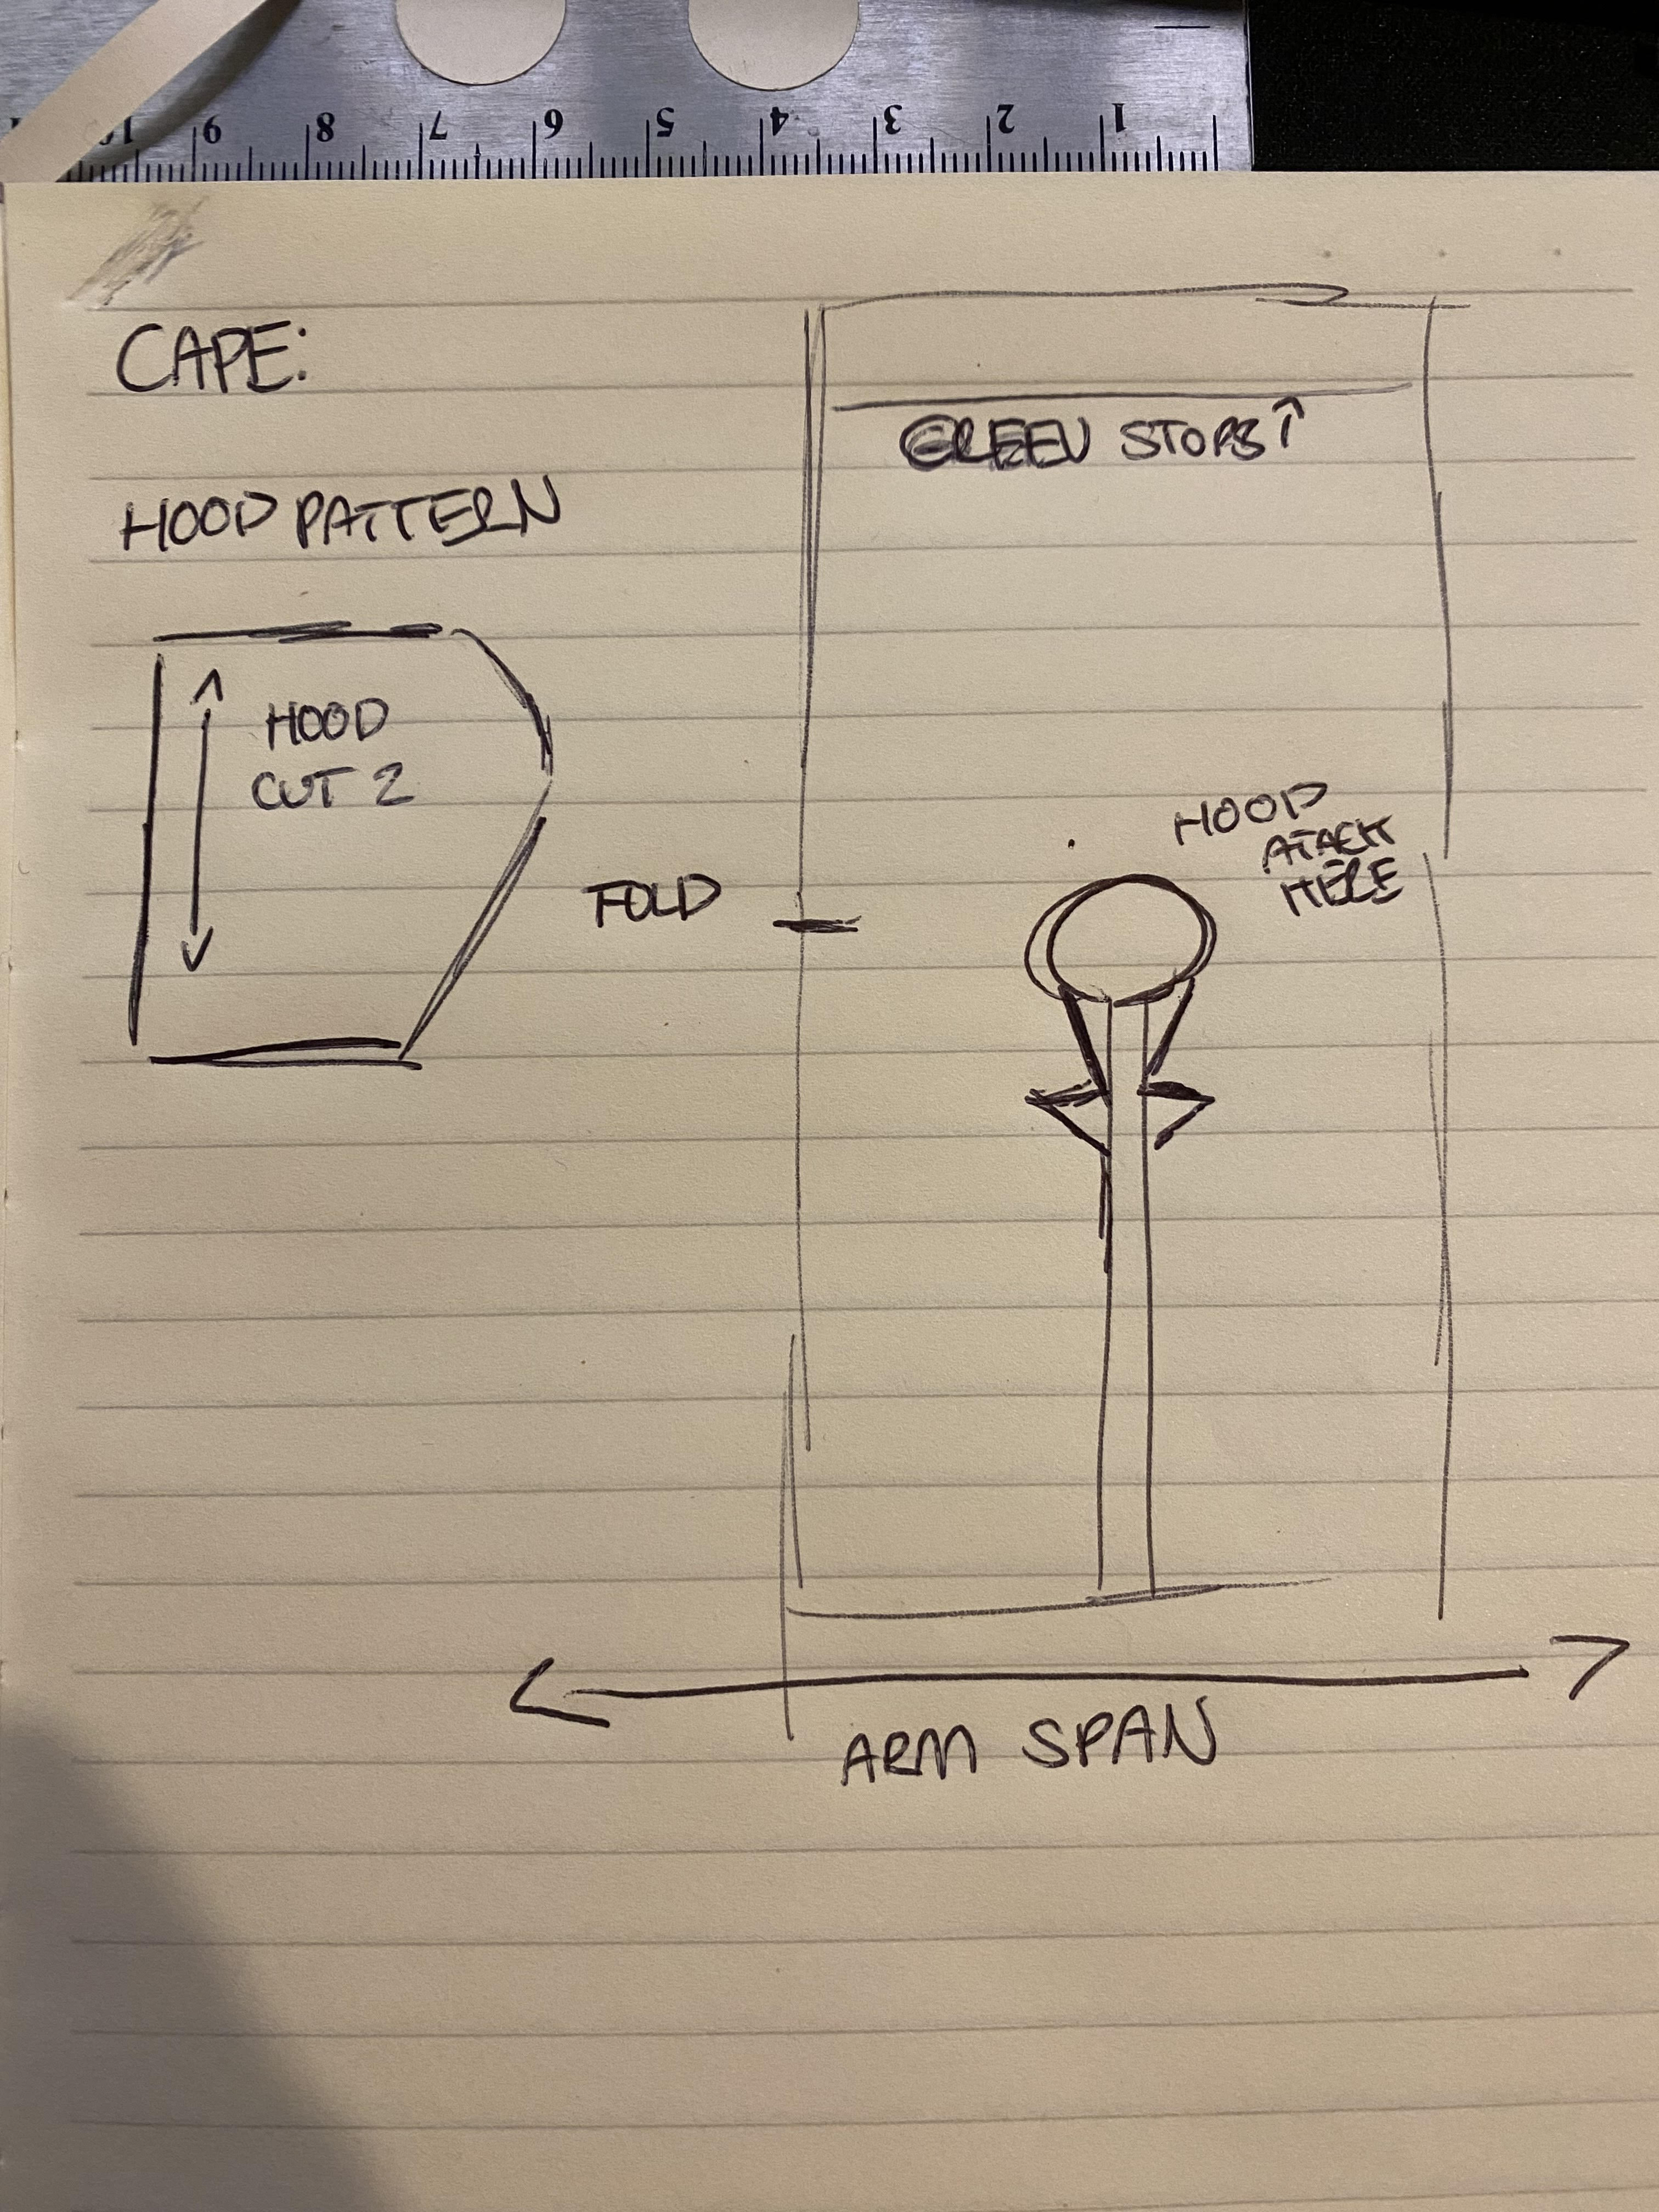 10 9 8 7 6 5 4 3 2 1
CAPE:
HOOD PATTERN
HOOD
CUT 2
GREEN STOPS↑
FOLD
HOOD
ATACH
HERE
ARM SPAN